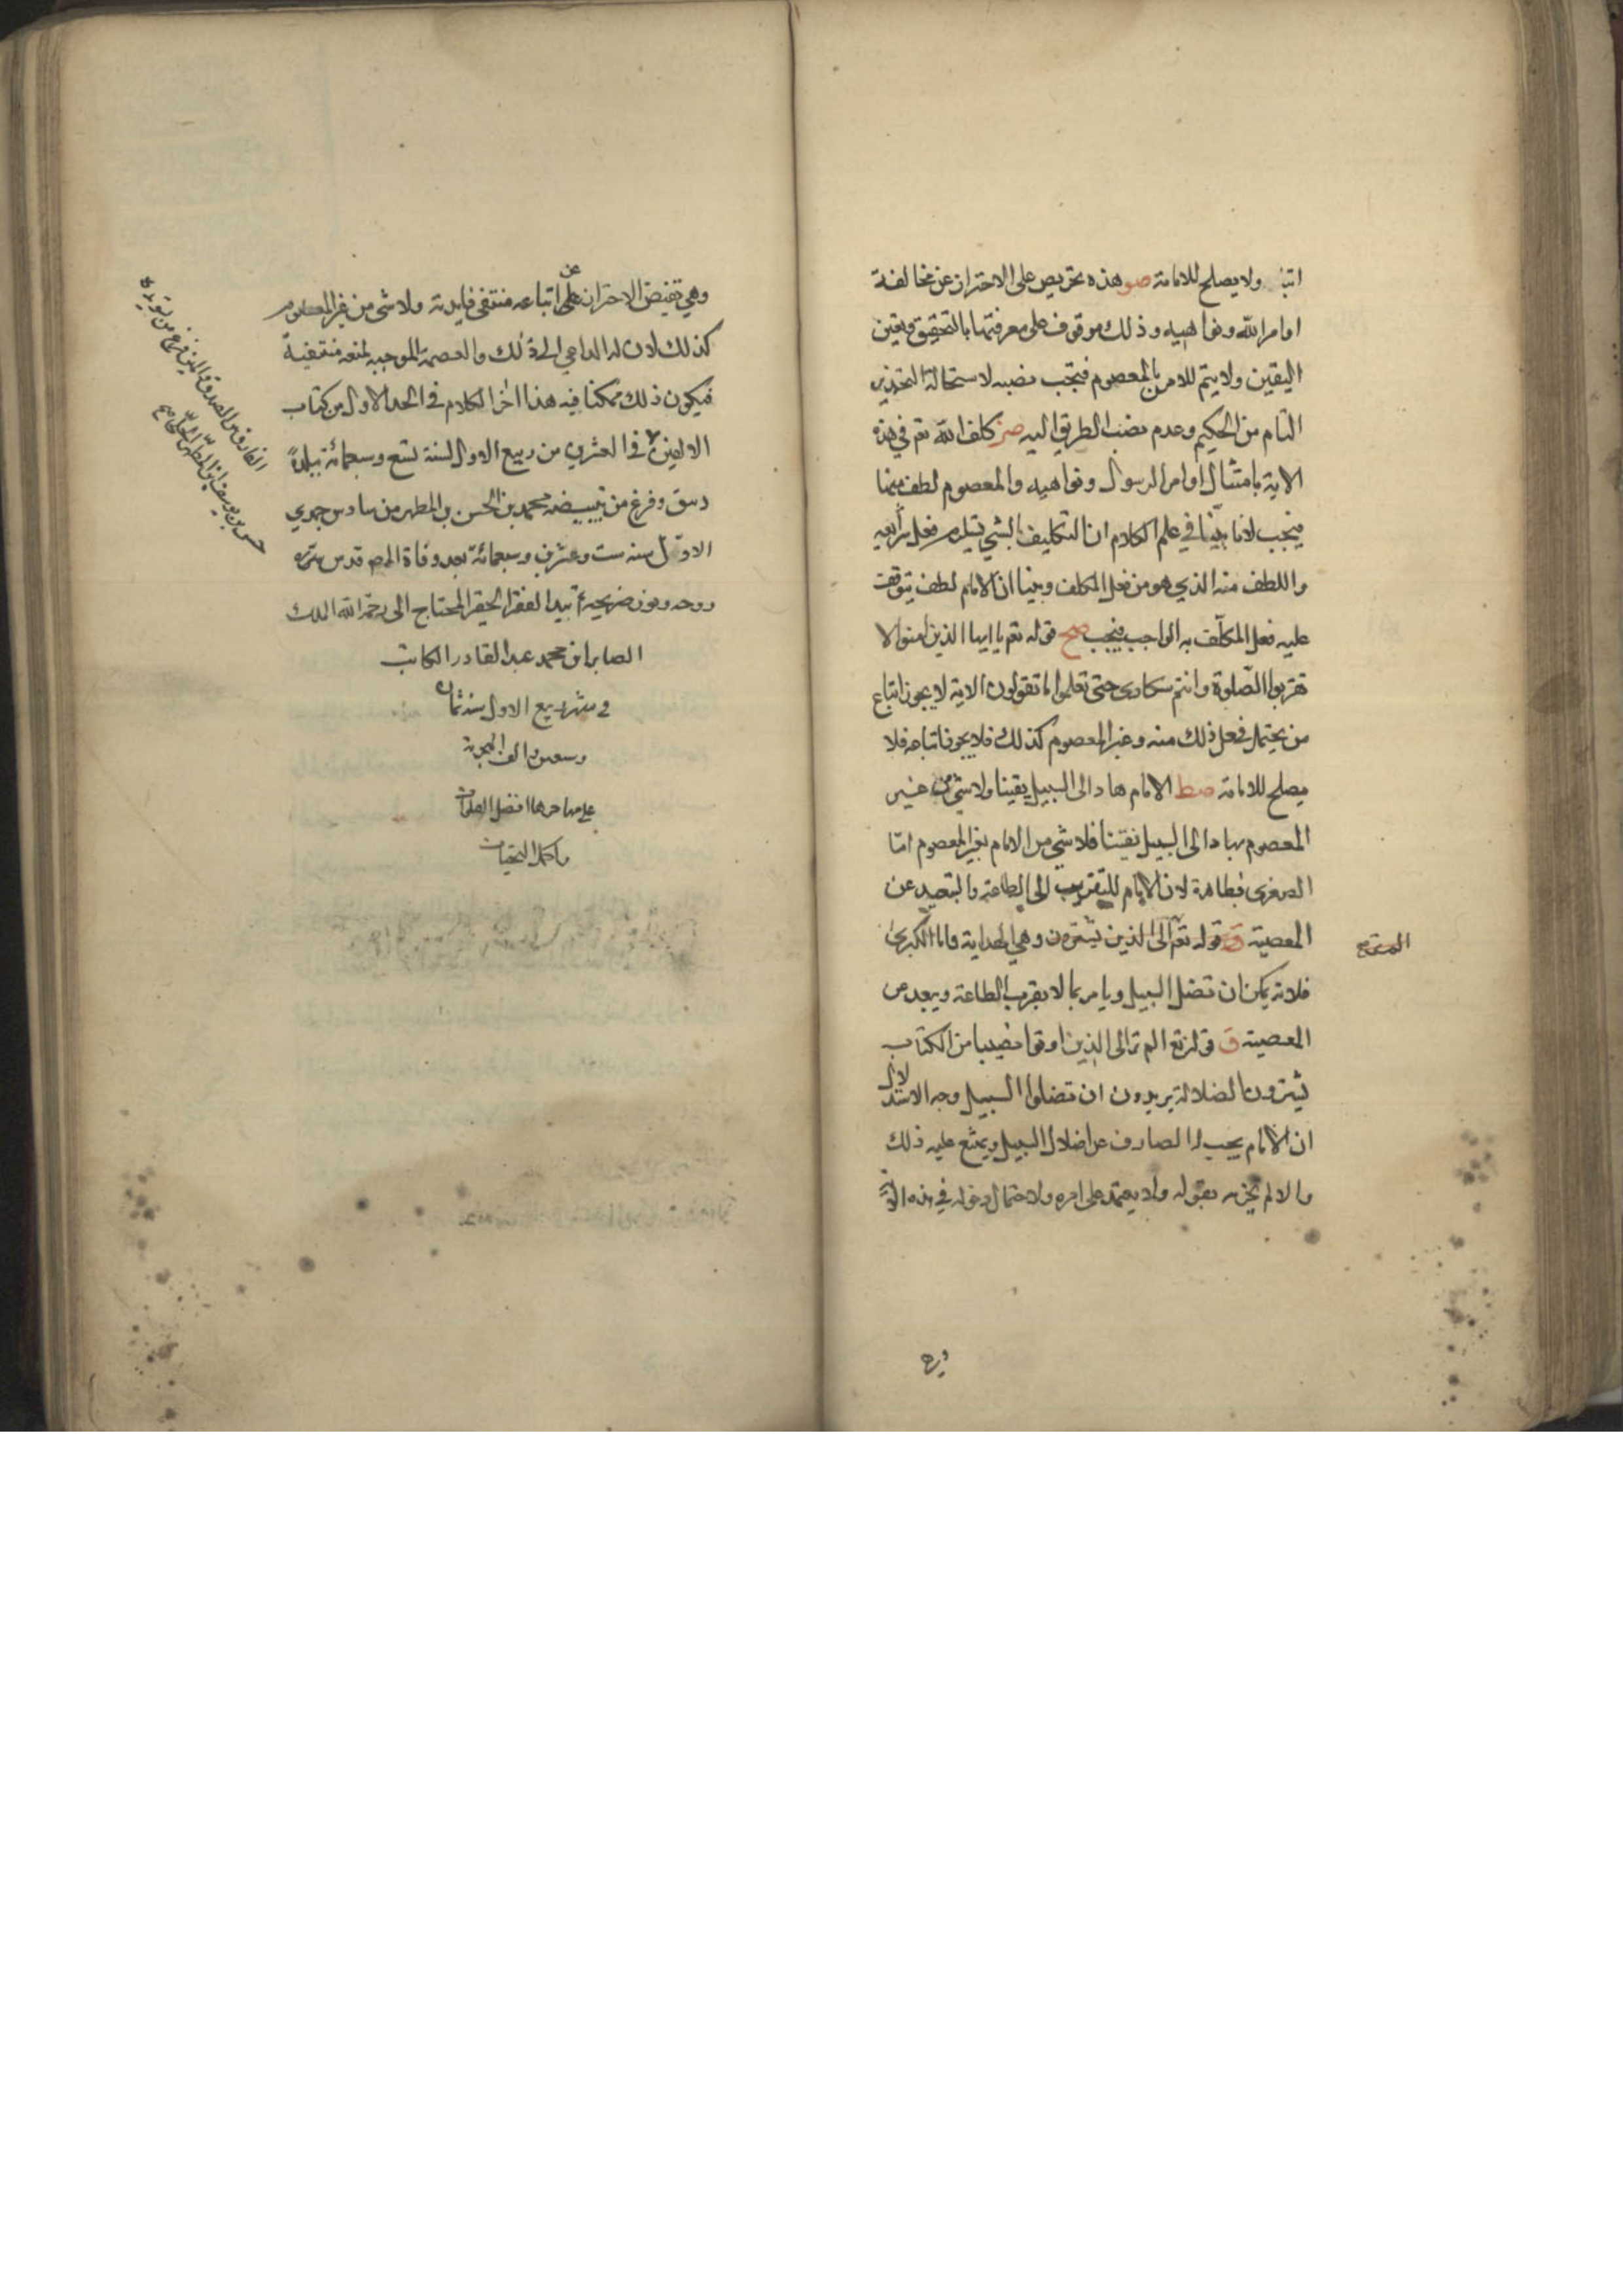 ولا يصلح للامامة صو هذه تحريص على الاحتراز عن مخالفة
اوامر الله ونواهيه وذلك موقوف على معرفتها بالتحقيق وتعين
اليقين ولا يتم للامر بالمعصوم فيجب نصبه لاستحالة التحذير
التام من الحكيم وعدم نصب الطريق اليه صز كلف الله تعم في هذه
الاية بامتثال اوامر الرسول ونواهيه والمعصوم لطف منها
فيجب لانا بيّنا في علم الكلام ان التكليف بالشي يستلزم فعل
واللطف منه الذي هو من فعل المكلف وبينا ان الامام لطف يتوقف
عليه فعل المكلّف به الواجب فيجب صح قوله تعم يا ايها الذين امنوا لا
تقربوا الصّلوة وانتم سكارى حتى تعلموا ما تقولون الاية لا يجوز اتباع
من يحتمل فعل ذلك منه وغير المعصوم كذلك فلا يجوز اتباعه فلا
يصلح للامامة صط الامام هاد الى السبيل يقينا ولا شي من غير
المعصوم بهاد الى السبيل يقينا فلا شي من الامام بغير المعصوم امّا
الصغرى فظاهرة لان الامام للتقريب الى الطاعة والتبعيد عن
المعصية قوله تعم الى الذين يشترون وهي الهداية واما الكبرى
فلانه يمكن ان تضل السبيل ويامر بما لا يقرب الطاعة ويبعد من
المعصية ق قوله تع الم تر الى الذين اوتوا نصيبا من الكتاب
يشترون الضلالة يريدون ان تضلوا السبيل وجه الاستدلال
ان الامام يجب له الصارف عن اضلال السبيل ويمتنع عليه ذلك
والا لم يجزم بقوله ولا يعتمد على امره ولاحتمال دخوله في هذه
وهي تقتضي الاحتراز عن على اتباعه فتنتفي فايدته ولا شي من غير المعصوم
كذلك لان له الداعي الى ذلك والعصمة الموجبه لمنعه منتفية
فيكون ذلك ممكنا فيه هذا اخر الكلام في الجلد الاول من كتاب
الالفين في العشرين من ربيع الاول لسنة تسع وسبعمائة ببلدة
وفرغ من تبييضه محمد بن الحسن بن المطهر من سادس جمدي
الاوّل سنه ست وعشرين وسبعمائة بعد وفاة المص قدس سره
روحه ونور ضريحه بيد الفقير الحقير المحتاج الى رحمة الله الملك
الصابر ابن محمد عبد القادر الكاتب
في شهر ربيع الاول سنة ثمان
وسعين والف الهجرية
على مهاجرها افضل الصلوات
واكمل التحيات
حسن بن يوسف ابن المطهر الحلي